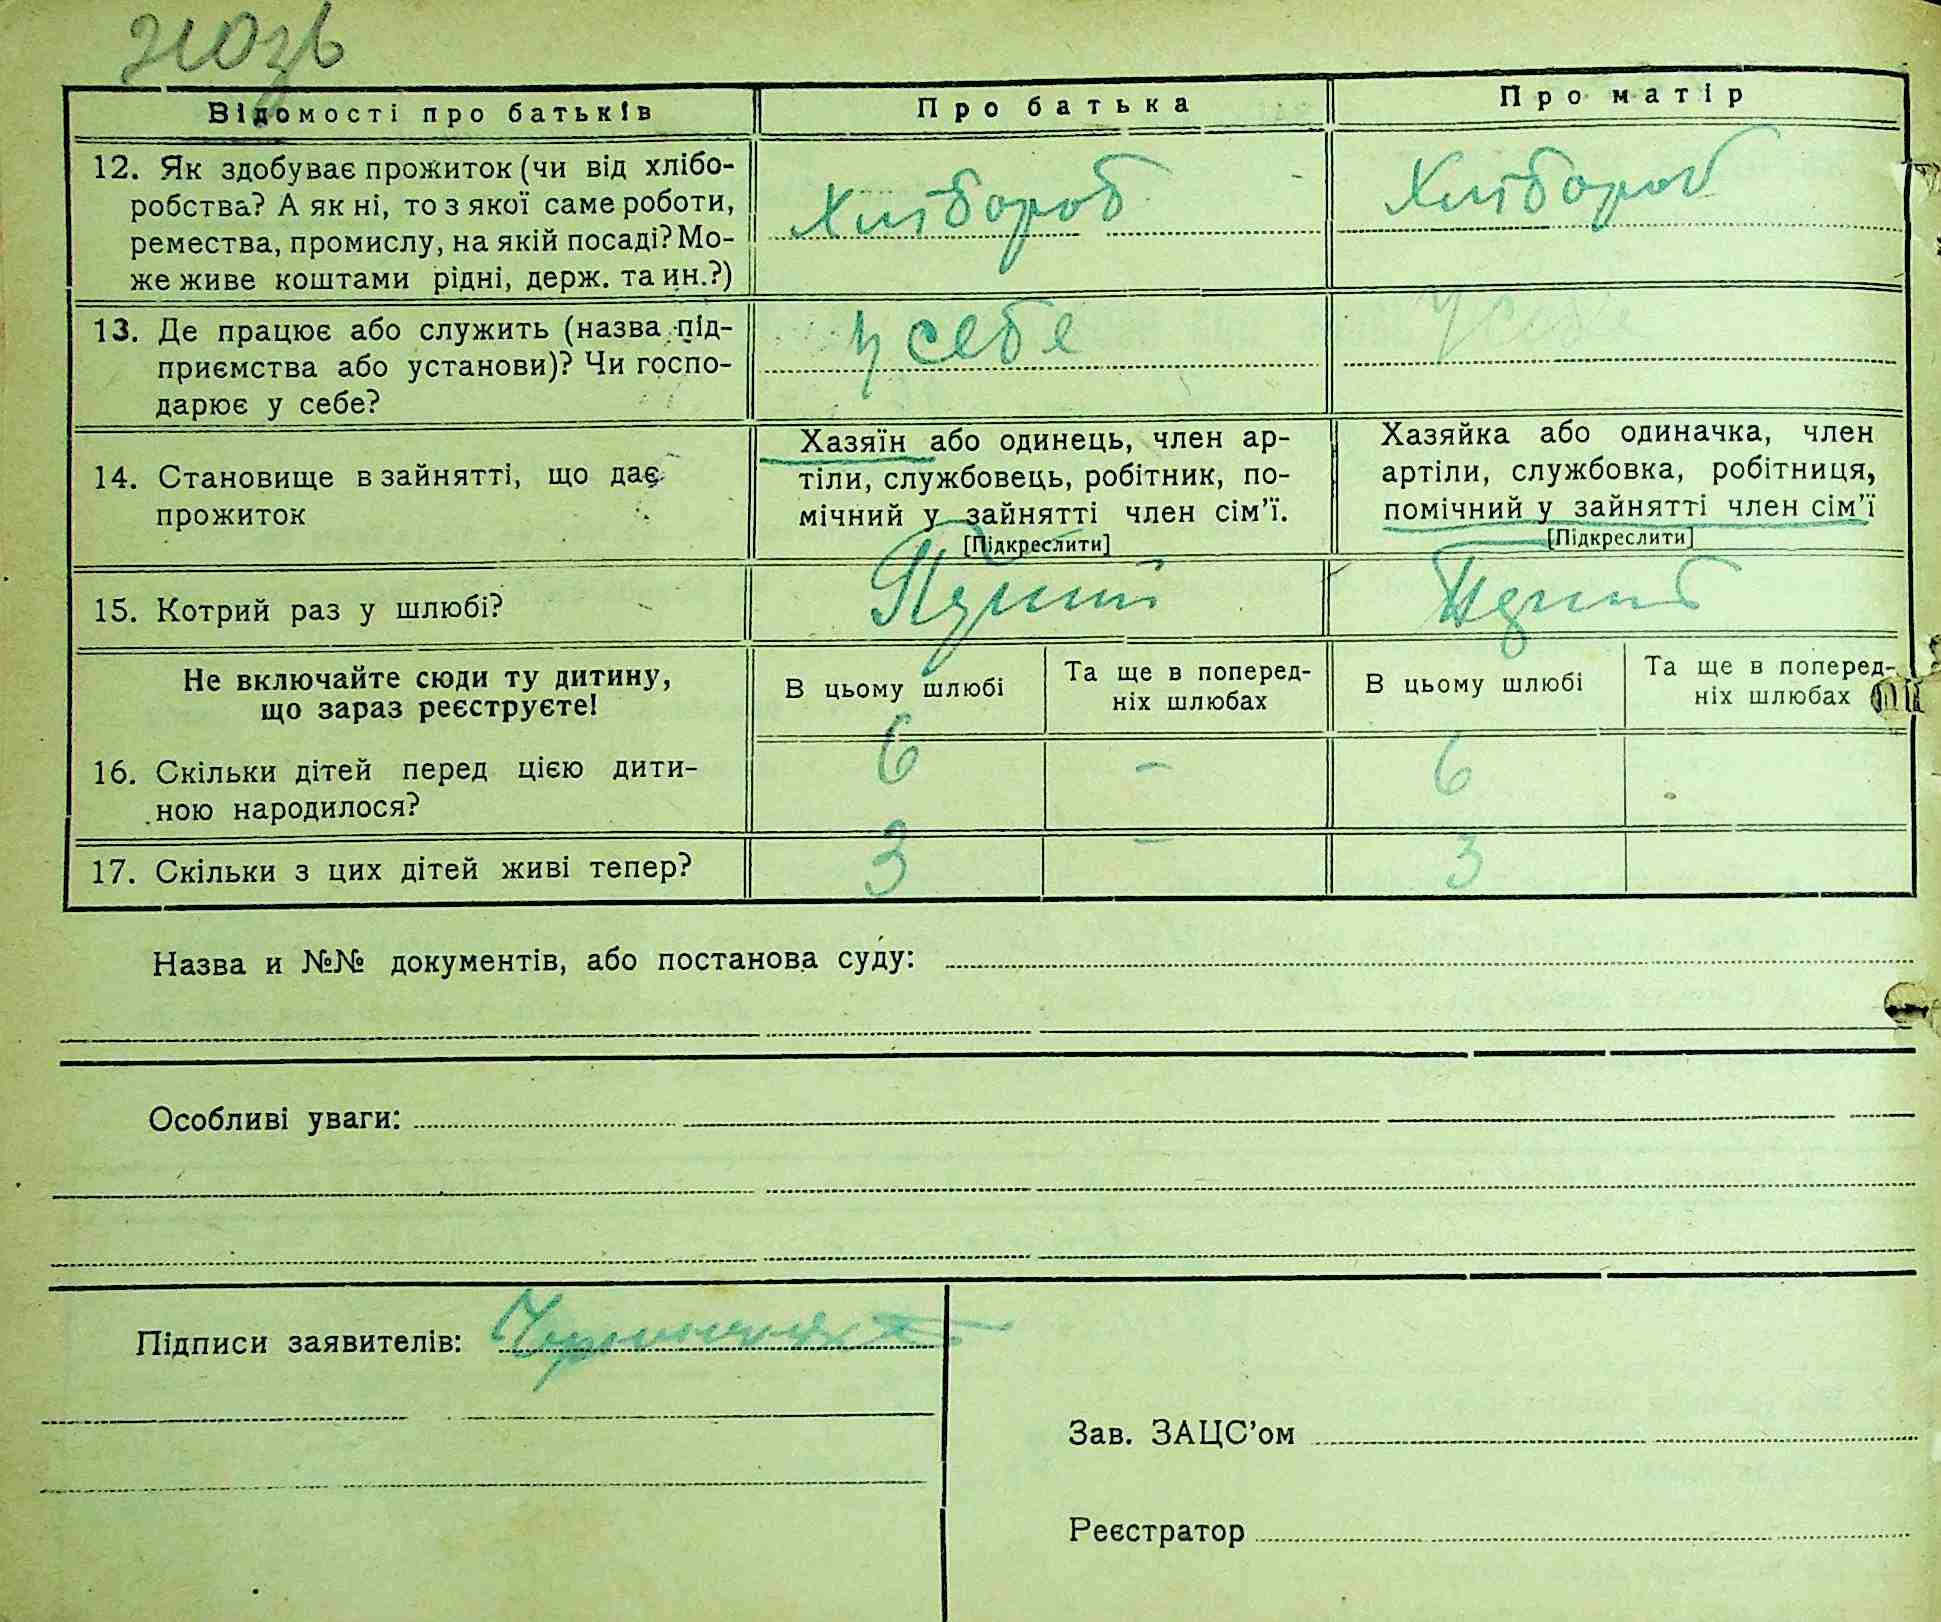 Відомості про батьків
Про батька
Про матір
12. Як здобуває прожиток (чи від хлібо-
робства? А як ні, то з якої саме роботи,
ремества, промислу, на якій посаді? Мо-
же живе коштами рідні, держ. та ин.?)
Хлібороб
Хлібороб
13. Де працює або служить (назва під-
приємства або установи)? Чи госпо-
дарює у себе?
у себе
у себе
14. Становище в зайнятті, що дає
прожиток
Хазяїн або одинець, член ар-
тіли, службовець, робітник, по-
мічний у зайнятті член сім'ї.
[Підкреслити]
Хазяйка або одиначка, член
артіли, службовка, робітниця,
помічний у зайнятті член сім'ї
[Підкреслити]
15. Котрий раз у шлюбі?
Не включайте сюди ту дитину,
що зараз реєструєте!
В цьому шлюбі
Та ще в поперед-
ніх шлюбах
В цьому шлюбі
Та ще в поперед-
ніх шлюбах
16. Скільки дітей перед цією дити-
ною народилося?
6
-
6
17. Скільки з цих дітей живі тепер?
3
-
3
Назва и №№ документів, або постанова суду:
Особливі уваги:
Підписи заявителів:
Зав. ЗАЦС'ом
Реєстратор